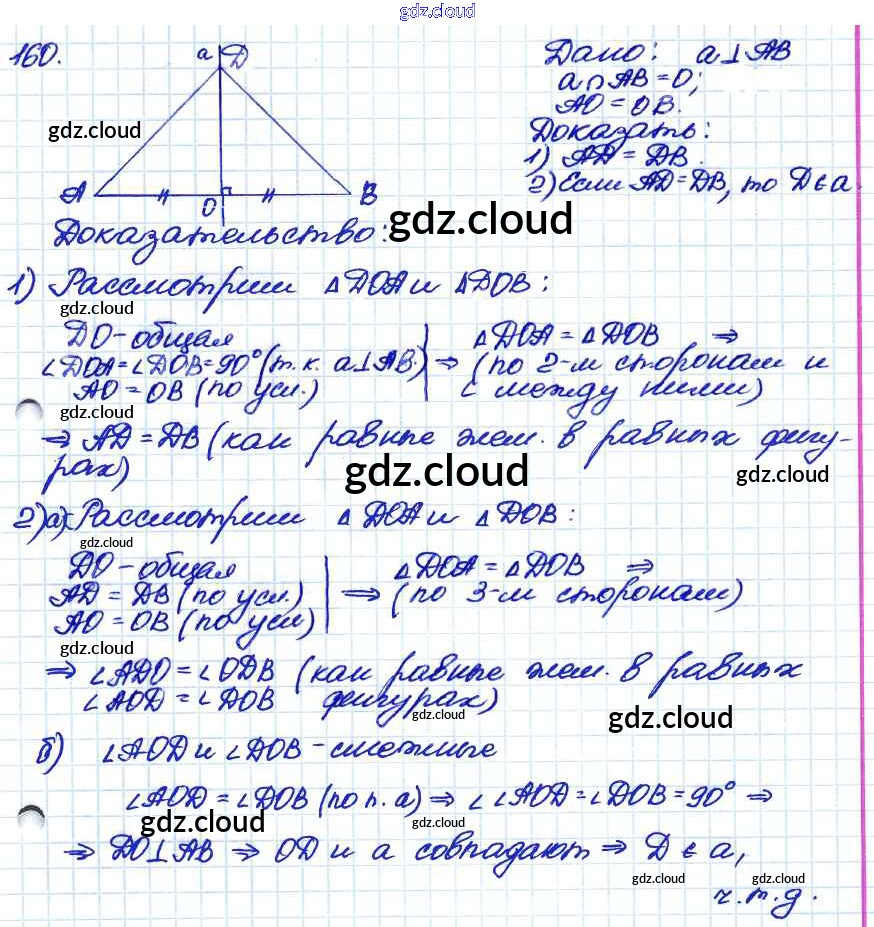 gdz.cloud
160.
a D
Дано: a⊥AB
a∩AB=O;
AO=OB.
Доказать:
1) AD=DB.
2) Если AD=DB, то D∈a.
gdz.cloud
A O B
gdz.cloud
Доказательство:
1) Рассмотрим △DOA и △DOB:
gdz.cloud
DO-общая
∠DOA=∠DOB=90°(т.к. a⊥AB.)
AO=OB (по усл.)
⇒ △DOA=△DOB ⇒
(по 2-м сторонам и
∠ между ними)
gdz.cloud
⇒ AD=DB (как равные элем. в равных фигу-
рах)
gdz.cloud
gdz.cloud
2)а) Рассмотрим △DOA и △DOB:
gdz.cloud
DO-общая
AD=DB (по усл.)
AO=OB (по усл)
⇒ △DOA=△DOB ⇒
(по 3-м сторонам)
gdz.cloud
⇒ ∠ADO=∠ODB (как равные элем. в равных
∠AOD=∠DOB фигурах)
gdz.cloud
gdz.cloud
б) ∠AOD и ∠DOB-смежные
∠AOD=∠DOB (по п. а) ⇒ ∠∠AOD=∠DOB=90° ⇒
gdz.cloud
gdz.cloud
⇒ DO⊥AB ⇒ OD и a совпадают ⇒ D∈a,
gdz.cloud
gdz.cloud
ч.т.д.